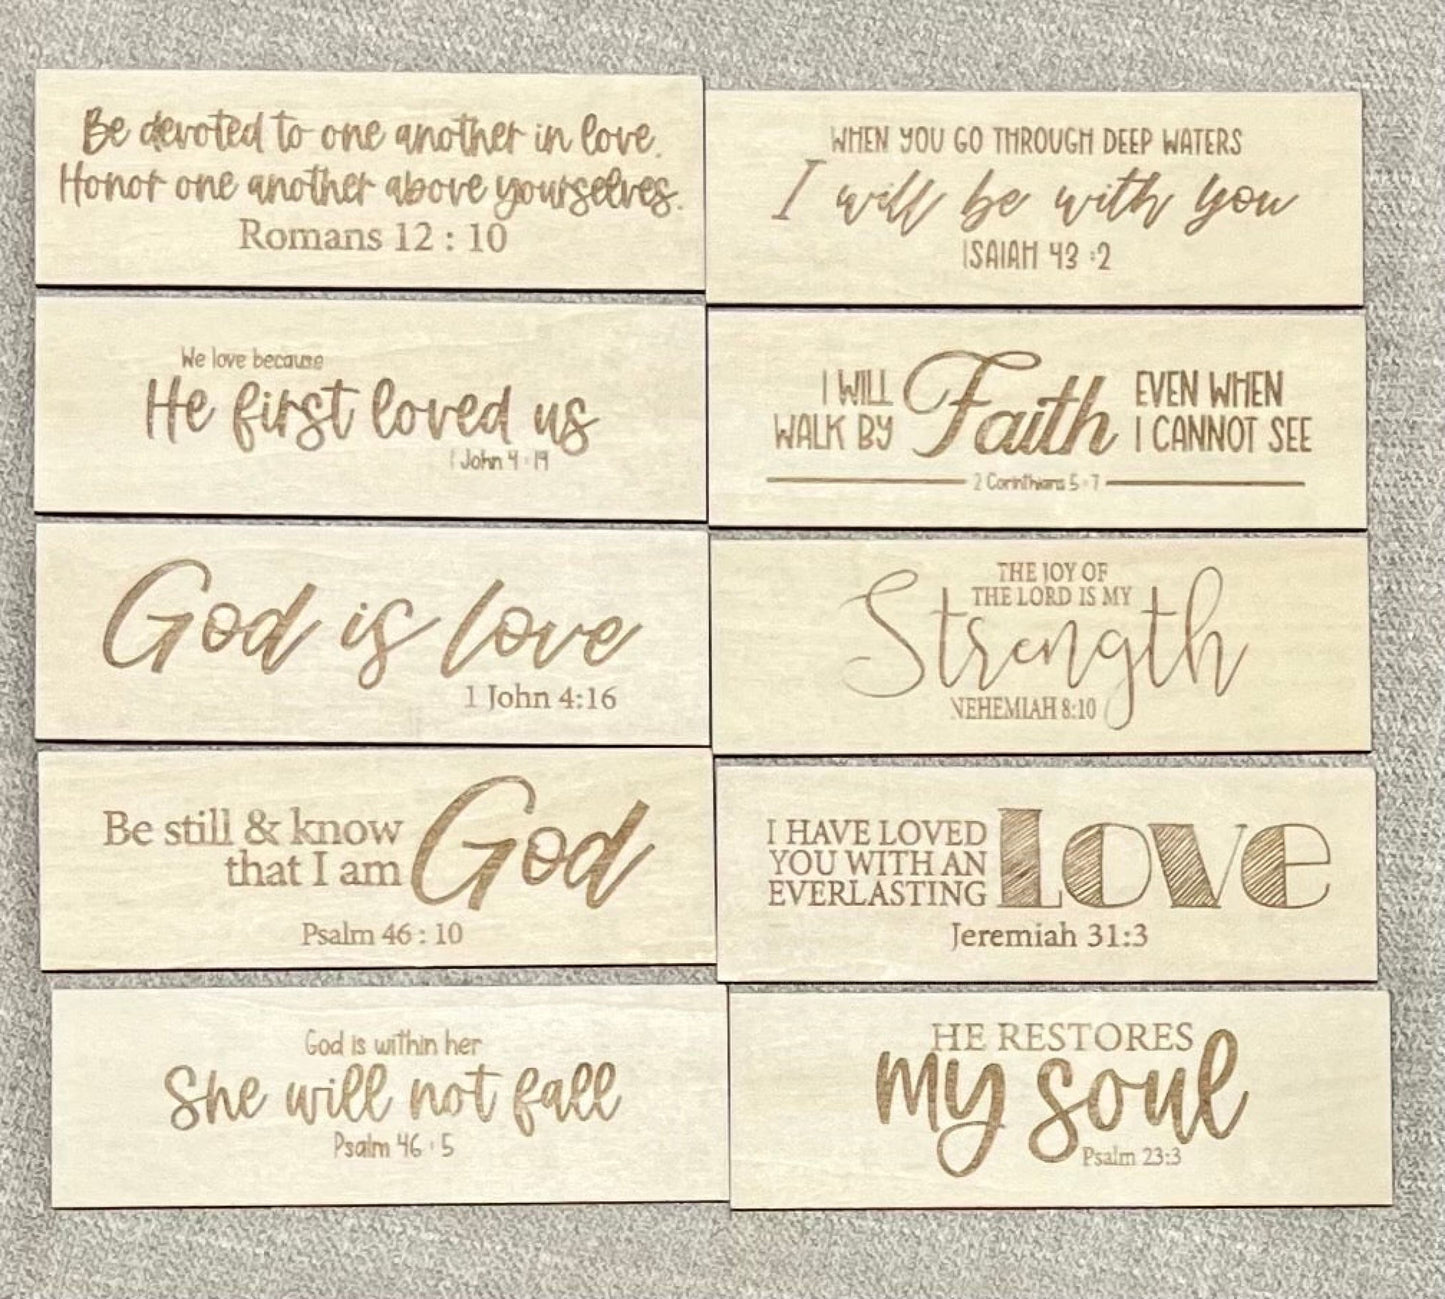 Be devoted to one another in love.
Honor one another above yourselves.
Romans 12 : 10
WHEN YOU GO THROUGH DEEP WATERS
I will be with you
ISAIAH 43 :2
We love because
He first loved us
1 John 4 : 19
I WILL
WALK BY
Faith
EVEN WHEN
I CANNOT SEE
2 Corinthians 5 : 7
God is love
1 John 4:16
THE JOY OF
THE LORD IS MY
Strength
NEHEMIAH 8:10
Be still & know
that I am
God
Psalm 46 : 10
I HAVE LOVED
YOU WITH AN
EVERLASTING
Love
Jeremiah 31:3
God is within her
She will not fall
Psalm 46 : 5
HE RESTORES
my soul
Psalm 23:3